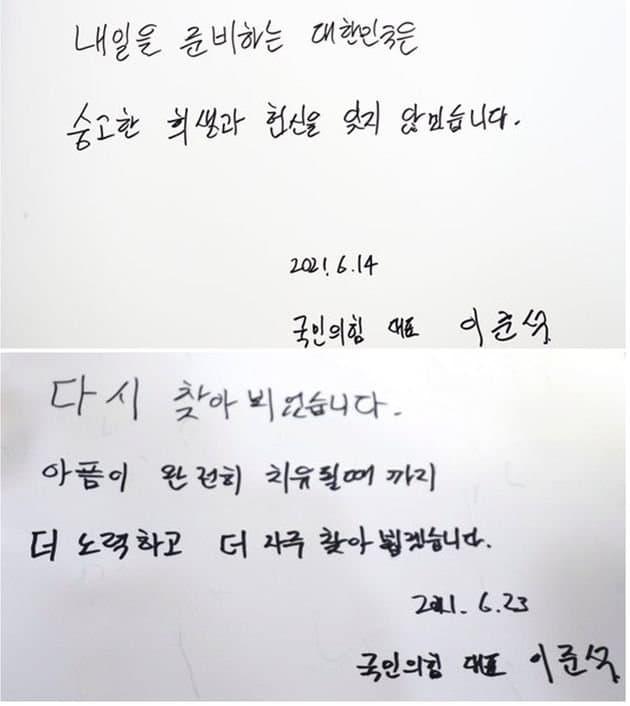 내일을 준비하는 대한민국은
숭고한 희생과 헌신을 잊지 않겠습니다.
2021.6.14
국민의힘 대표 이준석
다시 찾아 뵈었습니다.
아픔이 완전히 치유될때 까지
더 노력하고 더 자주 찾아뵙겠습니다.
2021. 6.23
국민의힘 대표 이준석